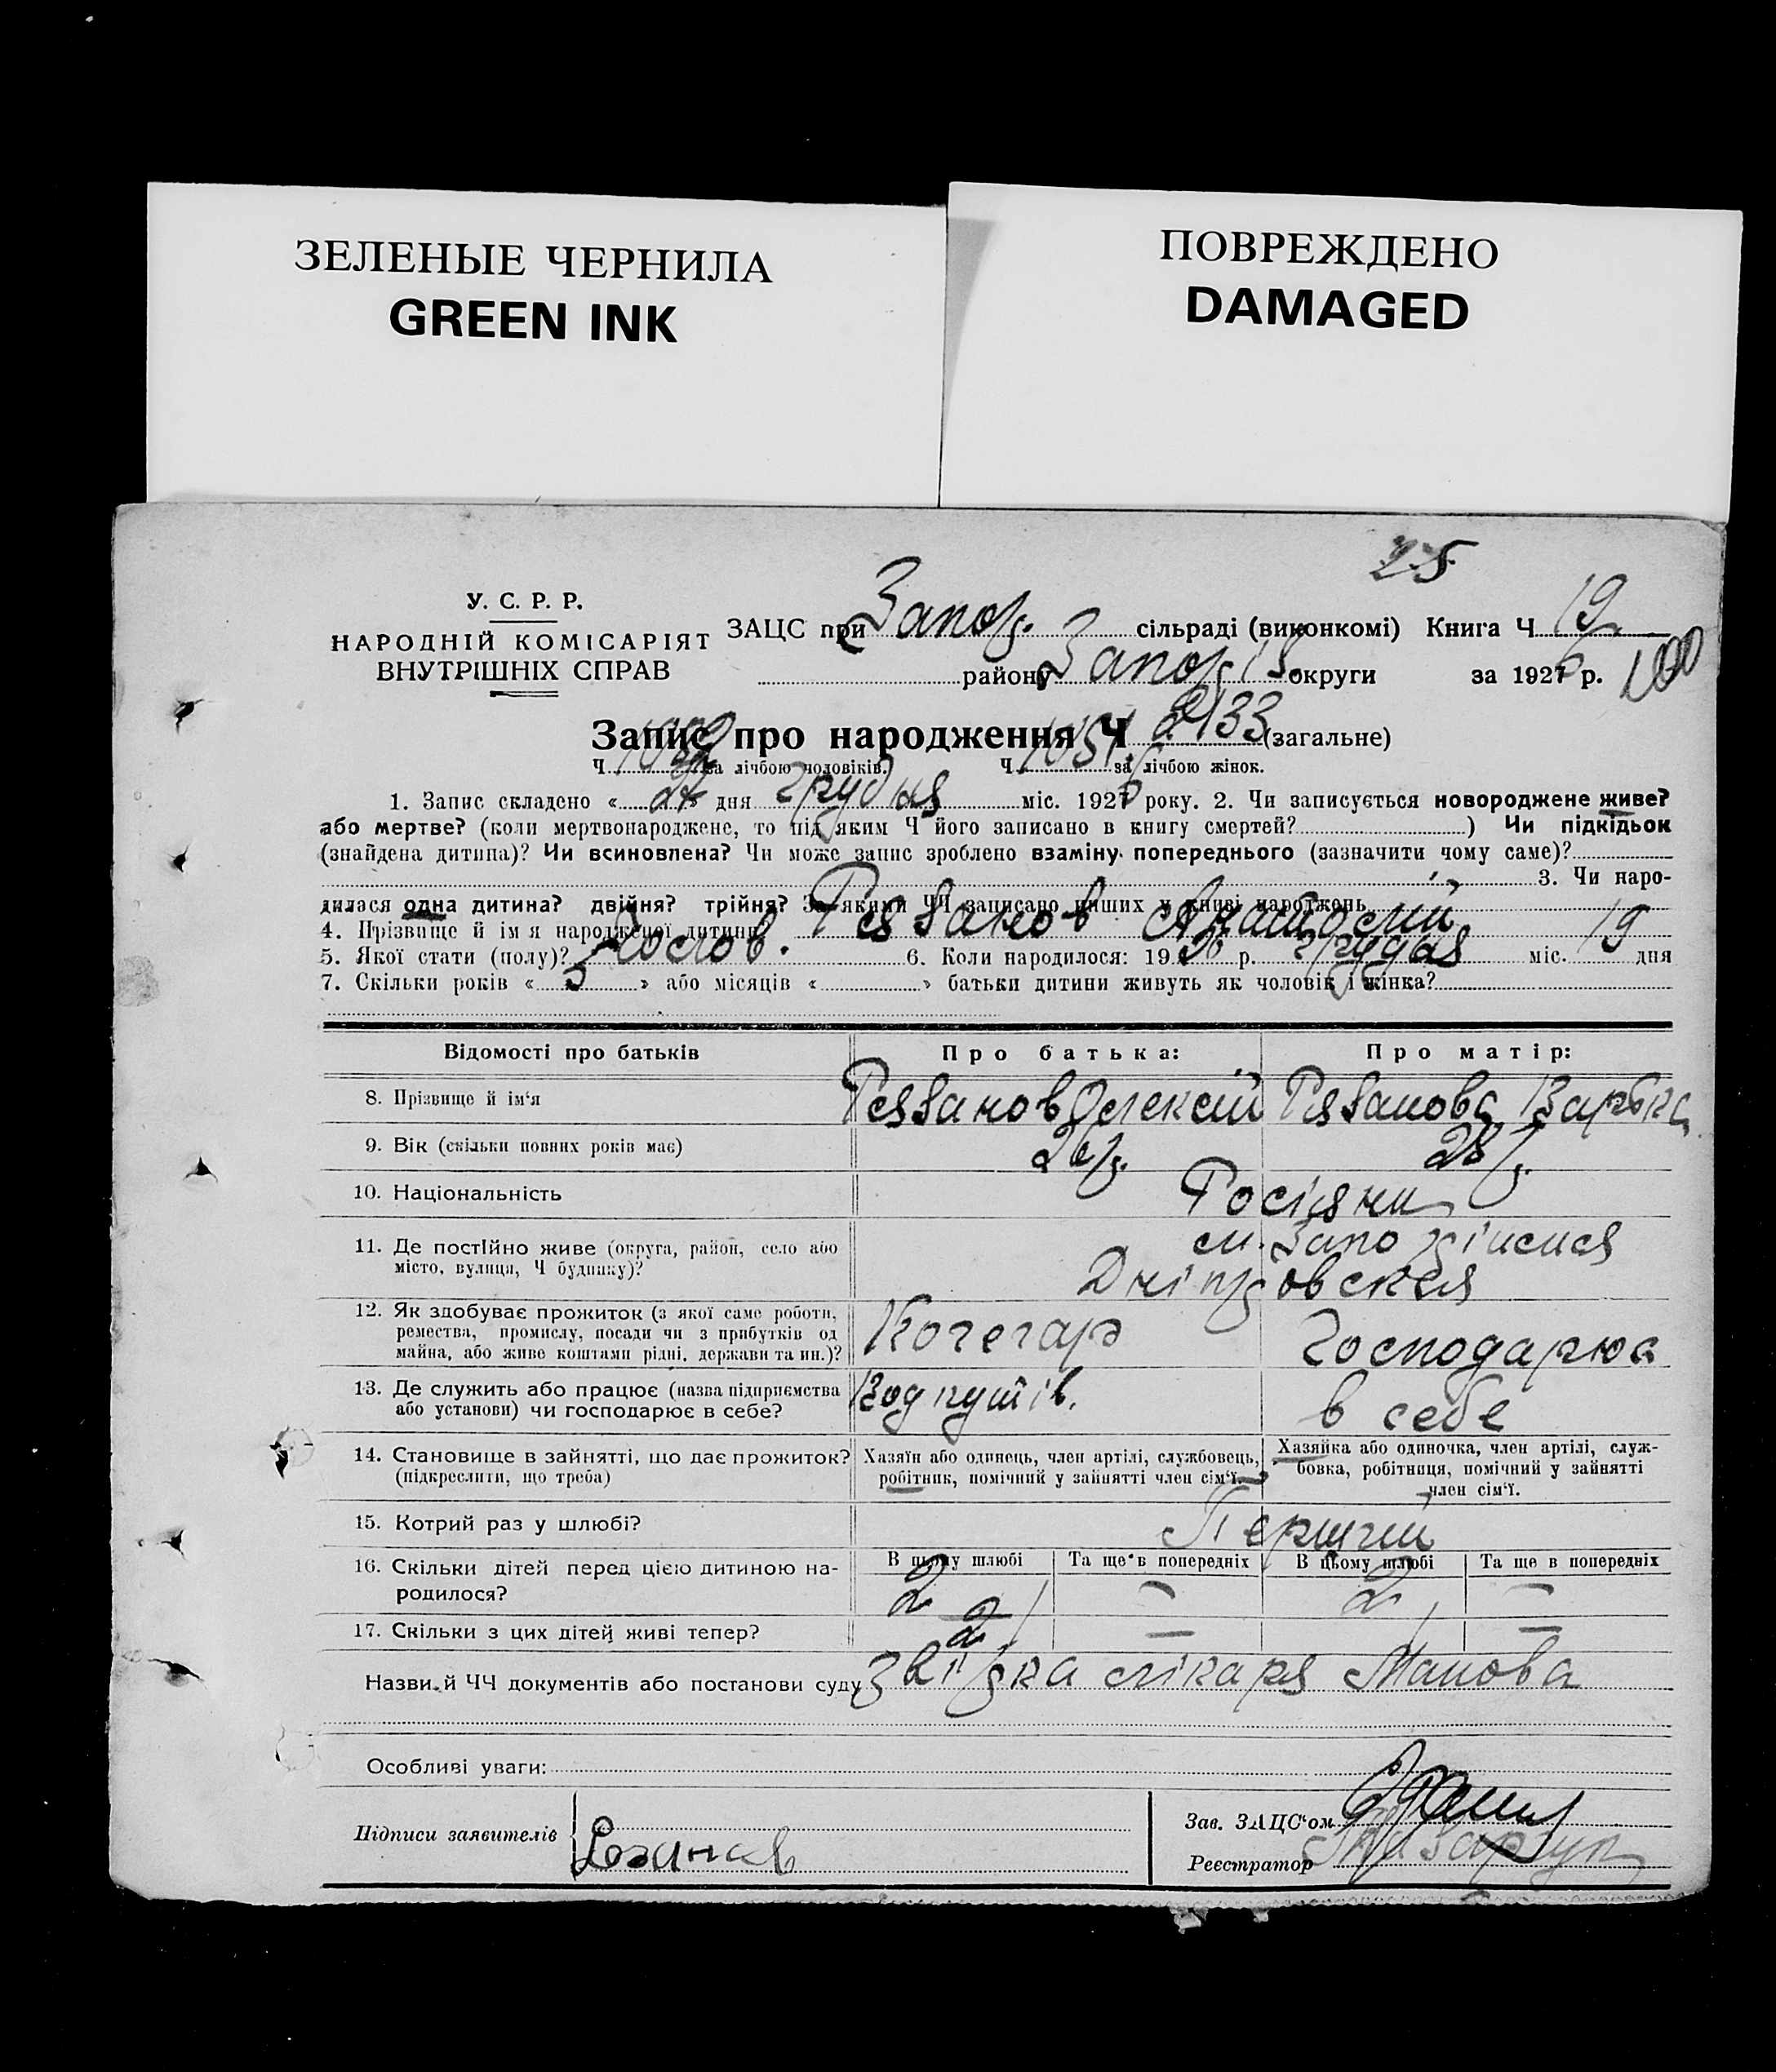 ЗЕЛЕНЫЕ ЧЕРНИЛА
GREEN INK
ПОВРЕЖДЕНО
DAMAGED
25
У. С. Р. Р.
НАРОДНІЙ КОМІСАРІЯТ
ВНУТРІШНІХ СПРАВ
ЗАЦС при Запоз. сільраді (виконкомі) Книга Ч 19
району Запоз округи за 1926 р.
Запис про народження Ч 2133 (загальне)
Ч за лічбою чоловіків. Ч 1051 за лічбою жінок.
1. Запис складено « » дня грудня міс. 1926 року. 2. Чи записується новороджене живе?
або мертве? (коли мертвонароджене, то під яким Ч його записано в книгу смертей? ) Чи підкідьок
(знайдена дитина)? Чи всиновлена? Чи може запис зроблено взаміну попереднього (зазначити чому саме)?
3. Чи наро-
дилася одна дитина? двійня? трійня? За якими ЧЧ записано инших у книзі народжень
4. Прізвище й ім'я народженої дитини Рязанов Анатолій
5. Якої стати (полу)? Чолов. 6. Коли народилося: 1926 р. грудня міс. 19 дня
7. Скільки років « 5 » або місяців « » батьки дитини живуть як чоловік і жінка?
Відомості про батьків
Про батька:
Про матір:
8. Прізвище й ім'я Рязанов Олексій Рязанова Варвка
9. Вік (скільки повних років має) 28 р.
10. Національність Росіяни
11. Де постійно живе (округа, район, село або
місто, вулиця, Ч будинку)?
м. Запоріжжя
Дніпровская
12. Як здобуває прожиток (з якої саме роботи,
ремества, промислу, посади чи з прибутків од
майна, або живе коштами рідні, держави та ин.)?
Кочегар Господарює
13. Де служить або працює (назва підприємства
або установи) чи господарює в себе?
в себе
14. Становище в зайнятті, що дає прожиток?
(підкреслити, що треба)
Хазяїн або одинець, член артілі, службовець,
робітник, помічний у зайнятті член сім'ї.
Хазяйка або одиночка, член артілі, служ-
бовка, робітниця, помічний у зайнятті
член сім'ї.
15. Котрий раз у шлюбі? Перший
16. Скільки дітей перед цією дитиною на-
родилося?
В цьому шлюбі Та ще в попередніх В цьому шлюбі Та ще в попередніх
2 — 2 —
17. Скільки з цих дітей живі тепер? 2 — —
Назви й ЧЧ документів або постанови суду звістка лікаря Манова
Особливі уваги:
Підписи заявителів
Зав. ЗАЦС'ом
Реєстратор